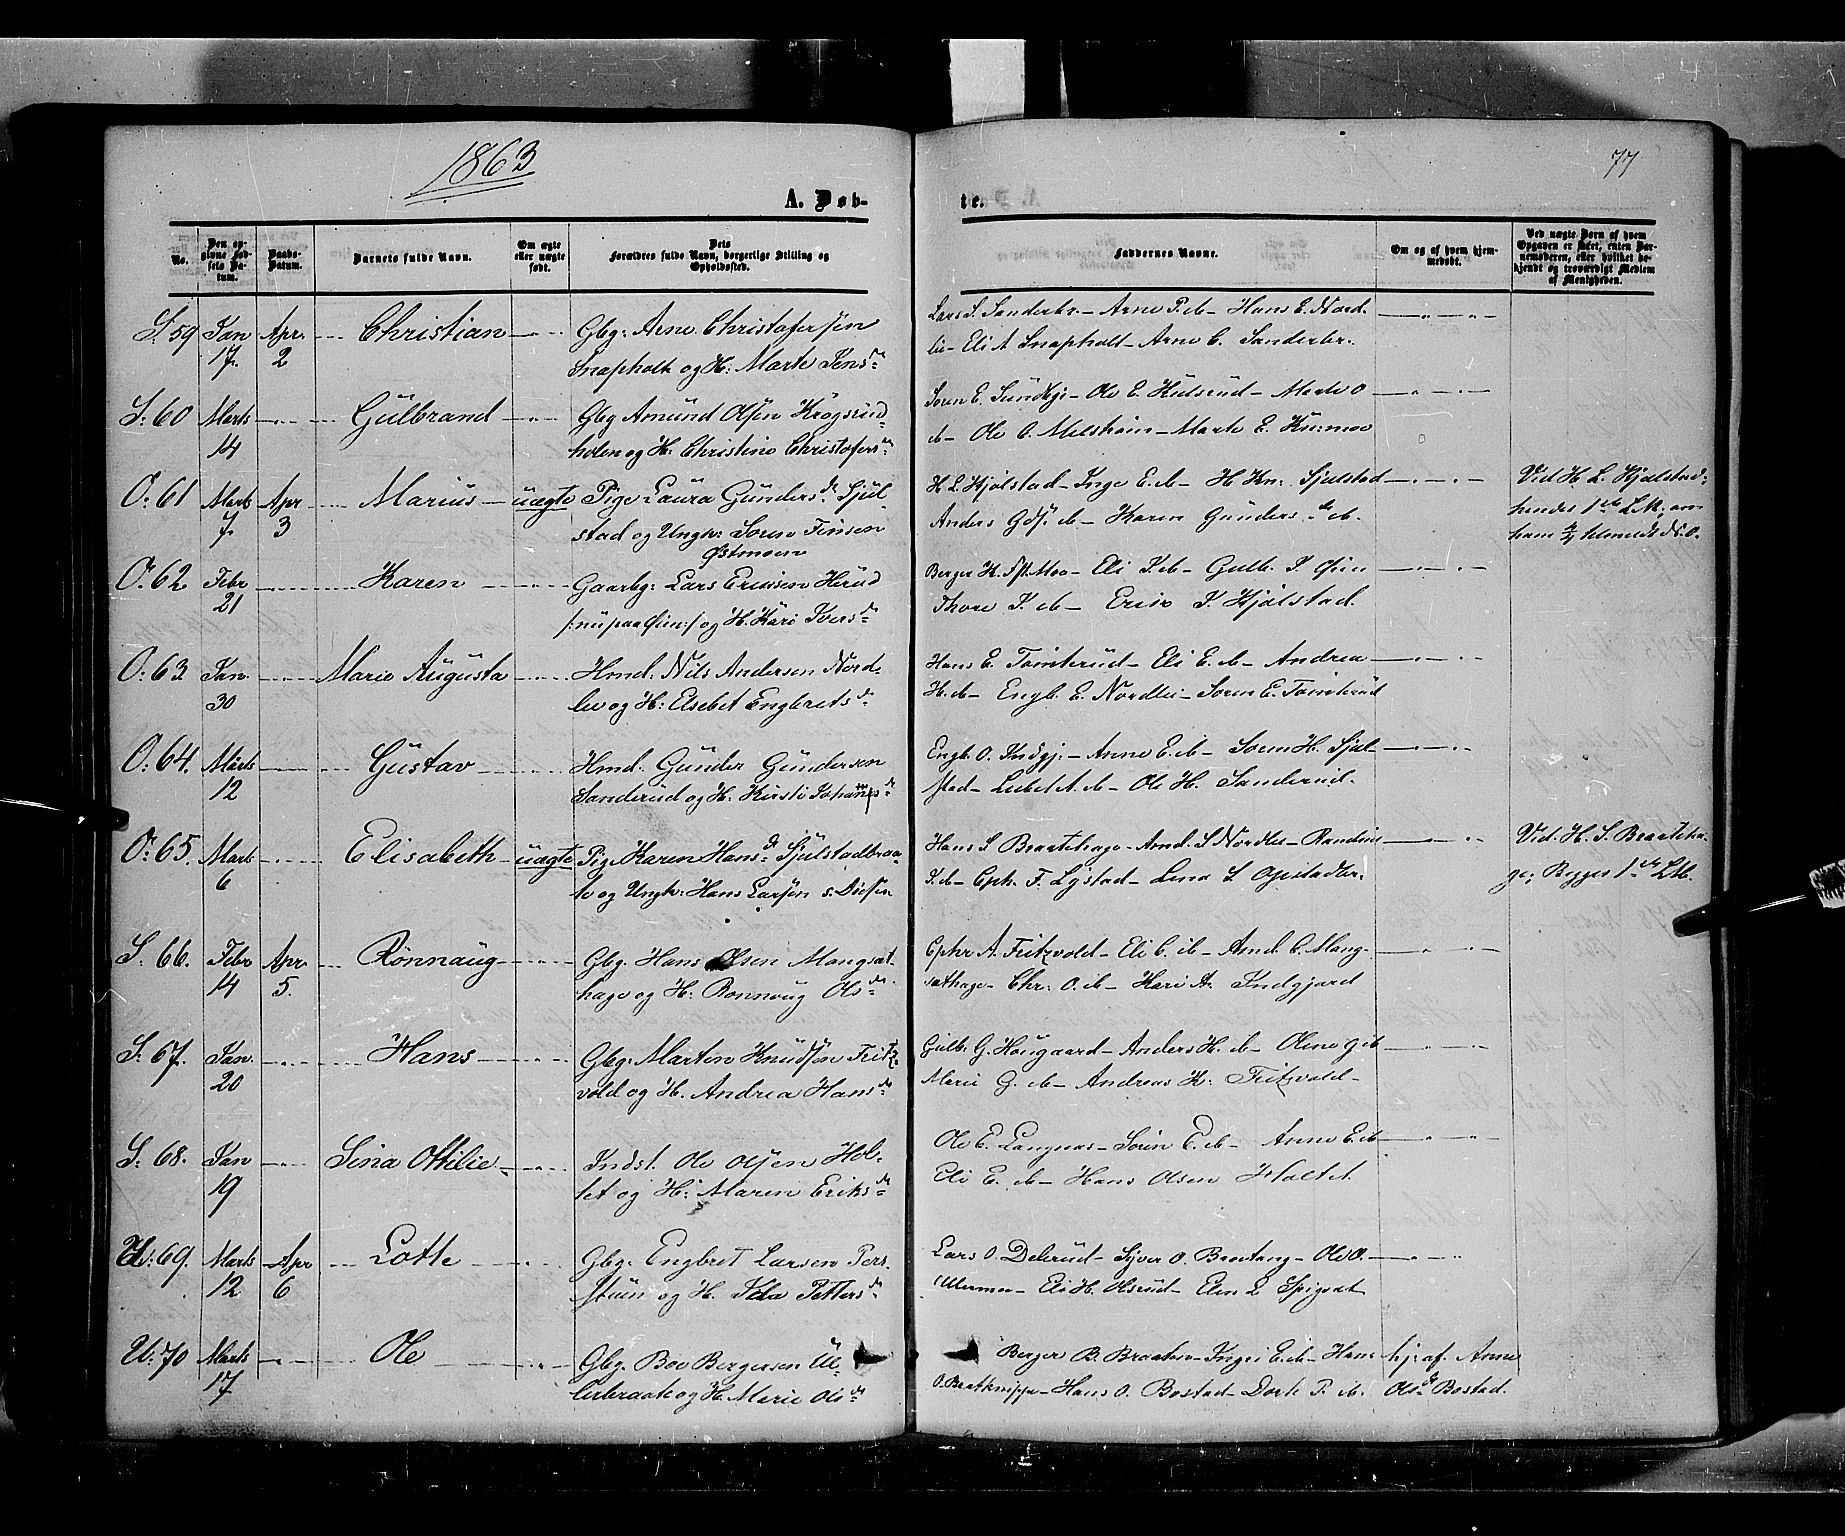 1863
77
A. Døb-
te.
No.
Den op-
givne Fød-
sels Da-
tum.
Daabs-
Datum.
Barnets fulde Navn.
Om ægte
eller uægte
født.
Dets
Forældres fulde Navn, borgerlige Stilling og
Opholdssted.
Faddernes Navne.
Om og af hvem hjem-
medøbt.
Ved uægte Børn af hvem
Opgaven er skeet, enten Bar-
nemoderen, eller hvilket be-
kjendt og troværdigt Medlem
af Menigheden.
S. 59 Jan 17. Apr. 2 Christian
Gbg: Arne Christofersen
Snapholt og H: Marte Jensd.
Lars S. Sanderbr. - Arne P. ib - Hans E. Nord-
lie - Eli A Snapholt - Arne C. Sanderbr.
S: 60 Marts 14 Gulbrand
Gbg Amund Olsen Krogsrud-
holen og H: Christine Christofersd.
Soren E. - Ole E. Hulsrud - Marte O
ib - Ole C. Melshoin - Marte E.
O: 61 Marts 7. Apr 3 Marius uægte
Pige Laura Gundersd. Sjul-
stad og Ungk: Soren Finsen
Østmoen
H L Hjølstad - Inge E. ib - H. Kn: Sjulstad
Anders Gds. ib - Karen Gundersd. ib.
Ved H. L. Hjølstad;
hendes 1ste Lm; om
ham
O. 62 Febr 21 Karen
Gaarbg: Lars Ericsen Herud
/:nu paa Øien:/ og H. Kari Iversd.
Berger K. Moo - Eli I. ib - Gulb. I. Øien
Thore I. ib - Eric I. Hjølstad.
O: 63 Jan. 30 Marie Augusta
Hmd. Nils Andersen Nord-
lie og H: Elsebet Engbretsd.
Hans E. Tomterud - Eli E. ib - Andrea
H. ib - Engb. E. Nordlie - Soren E. Tomterud
O: 64. Marts 12 Gustav
Hmd. Gunder Gundersen
Sanderud og H: Kirsti Johannesd.
Engb. O. Indgj. - Anne E. ib - Soren H. Sjul-
stad - Lisbet A. ib - Ole H. Sanderud.
O: 65. Marts 6 Elisabeth uægte
Pige Karen Hansd. Sjulstadbraa-
te og Ungk: Hans Larsen s. Disen
Hans S. Braatehage - Amd. S Nordlie - Randine
I. ib - Cph. F. Lystad - Lena L Opstadbr.
Ved. H. S. Braateha-
ge; Begges 1ste Lm.
S. 66. Febr 14 Apr. 5. Rønnaug
Gbg. Hans Olsen Mangset-
hage og H: Ronnoug Olsd.
Cphr A. Fritzvold - Eli C. ib - Amd. C. Mang-
sethage - Chr: O. ib - Kari A. Indgjord
S. 67. Jan. 20 Hans
Gbg: Marten Knudsen Fritz-
vold og H. Andrea Hansd.
Gulb. G. Hougaard - Anders H. ib - Olene G. ib
Marie G. ib - Andreas K: Fritzvold -
S. 68. Jan 19 Sina Ottilie
Indst. Ole Olsen Hol-
tet og H: Maren Eriksd.
Ole E. Langnas - Sorin E. ib - Anne E. ib
Eli E. ib - Hans Olsen Holtet
U: 69. Marts 12 Apr 6 Lotte
Gbg: Engbret Larsen Pers-
stuen og H. Ida Pettersd.
Lars O. Delerud - Syver O. Bautang - Ole O.
Ullermoe - Eli H. Olsrud - Elen L Spigset
U: 70 Marts 17 Ole
Gbg. Boe Bergersen Ul-
lerbraate og H. Marie Olsd.
Berger B. Braaten - Ingri E. ib - Hans
O. Bratknippe - Hans O. Bostad - Dorte P. ib.
hj: af. Anne
Olsd. Bostad.